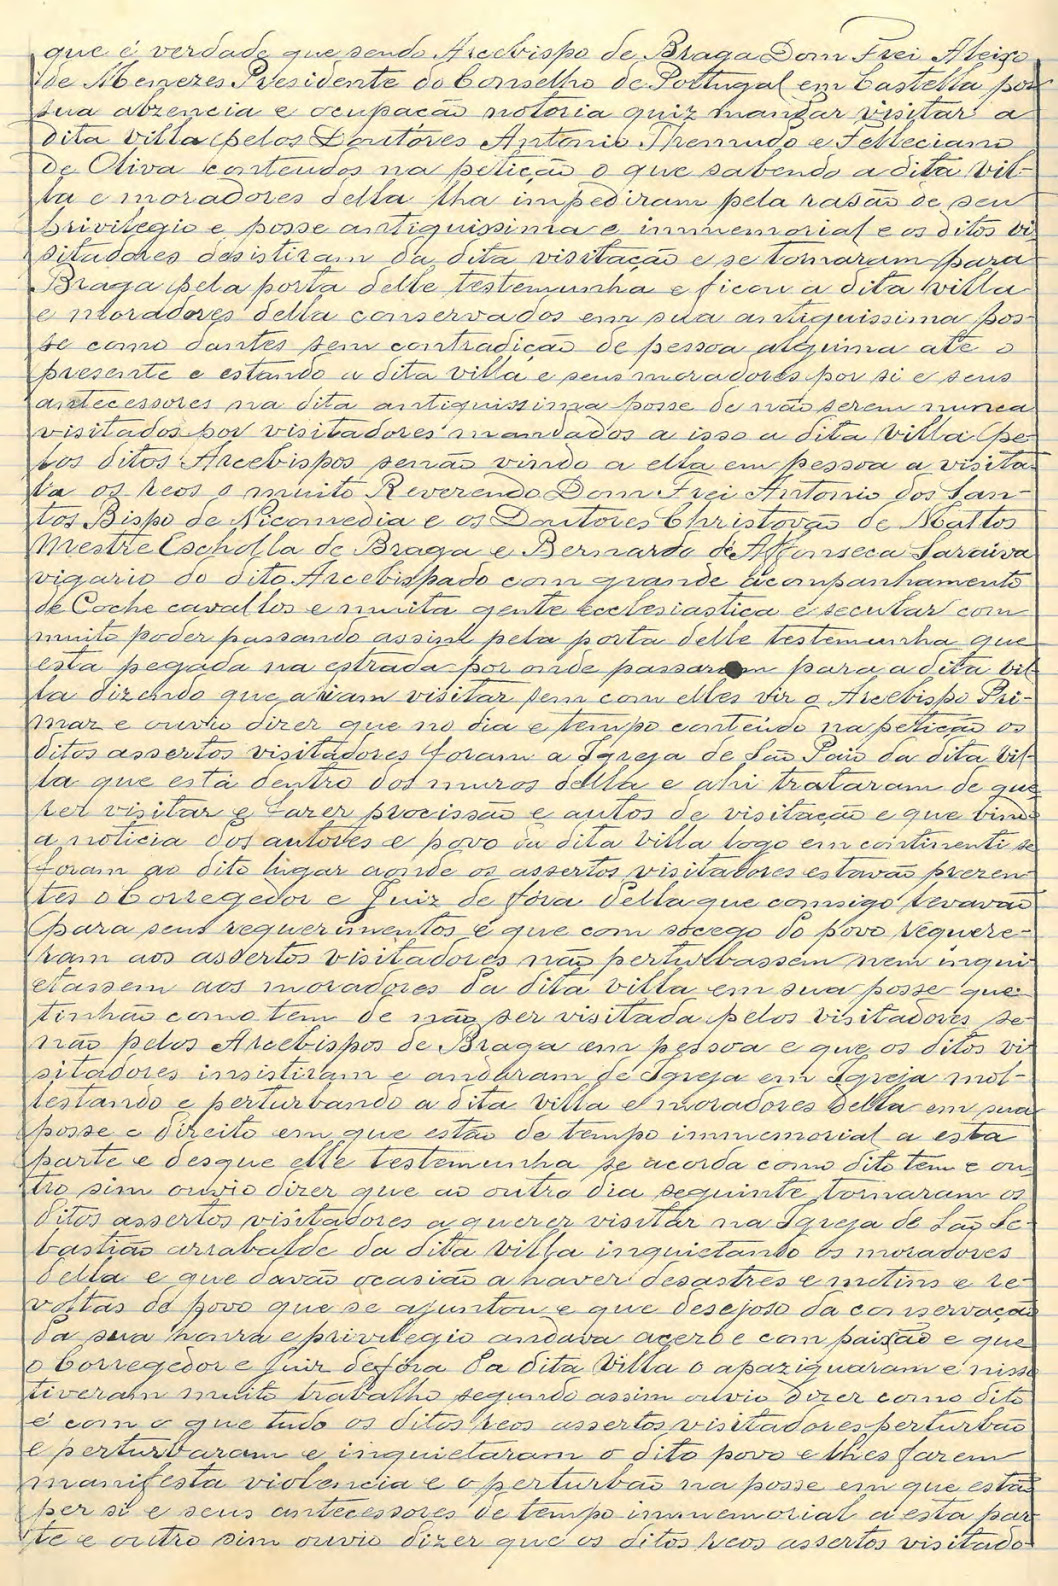 que é verdade que sendo Arcebispo de Braga Dom Frei Aleixo
de Menezes Presidente do Conselho de Portugal em Castella por
sua abzencia e ocupação notoria quiz mandar visitar a
dita villa pelos Doutores Antonio Themudo e Felleciano
de Oliva conteudos na petição o que sabendo a dita vil-
la e moradores della lha impediram pela rasão de seu
brivilegio e posse antiquissima e immemorial e os ditos vi
sitadores desistiram da dita visitação e se tornaram para
Braga pela porta delle testemunha e ficou a dita villa
e moradores della conservados em sua antiquissima pos-
se como dantes sem contradição de pessoa alguma até o
presente e estando a dita villa e seus moradores por si e seus
antecessores na dita antiquissima posse de não serem nunca
visitados por visitadores mandados a isso a dita villa pe-
los ditos Arcebispos senão vindo a ella em pessoa a visita-
la os reos o muito Reverendo Dom Frei Antonio dos San-
tos Bispo de Nicomedia e os Doutores Christovão de Mattos
Mestre Escholla de Braga e Bernardo de Affonseca Saraiva
vigario do dito Arcebispado com grande acompanhamento
de Coche cavallos e muita gente ecclesiastica e secular com
muito poder passando assim pela porta delle testemunha que
está pegada na estrada por onde passaram para a dita vil-
la dizendo que a iam visitar sem com elles vir o Arcebispo Pri-
maz e ouvio dizer que no dia e tempo conteúdo na petição os
ditos assertos visitadores foram a Igreja de São Paio da dita vil-
la que está dentro dos muros della e ahi trataram de que
rer visitar e fazer procissão e autos de visitação e que vindo
a noticia dos autores e povo da dita villa logo em continenti se
foram ao dito lugar aonde os assertos visitadores estavão prezen-
tes o Corregedor e Juiz de fóra della que comsigo levavão
para seus requerimentos e que com socego do povo requere-
ram aos assertos visitadores não perturbassem nem inqui-
etassem aos moradores da dita villa em sua posse que
tinhão como tem de não ser visitada pelos visitadores se-
não pelos Arcebispos de Braga em pessoa e que os ditos vi
sitadores insistiram e andaram de Igreja em Igreja mol-
lestando e perturbando a dita villa e moradores della em sua
posse e direito em que estão de tempo immemorial a esta
parte e desque elle testemunha se acorda como dito tem e ou
tro sim ouvio dizer que ao outro dia seguinte tornaram os
ditos assertos visitadores a querer visitar na Igreja de São Se-
bastião arrabalde da dita villa inquietando os moradores
della e que davão ocasião a haver desastres e motins e re-
voltas do povo que se ajuntou e que desejoso da conservação
da sua honra e privilegio andava acerbe com paixão e que
o Corregedor e Juiz defóra da dita Villa o apaziguaram e nisso
tiveram muito trabalho segundo assim ouvio dizer como dito
é com o que tudo os ditos reos assertos visitadores perturbão
e perturbaram e inquietaram o dito povo e lhes fazem
manifesta violencia e o perturbão na posse em que estão
per si e seus antecessores de tempo immemorial a esta par-
te e outro sim ouvio dizer que os ditos reos assertos visitado-